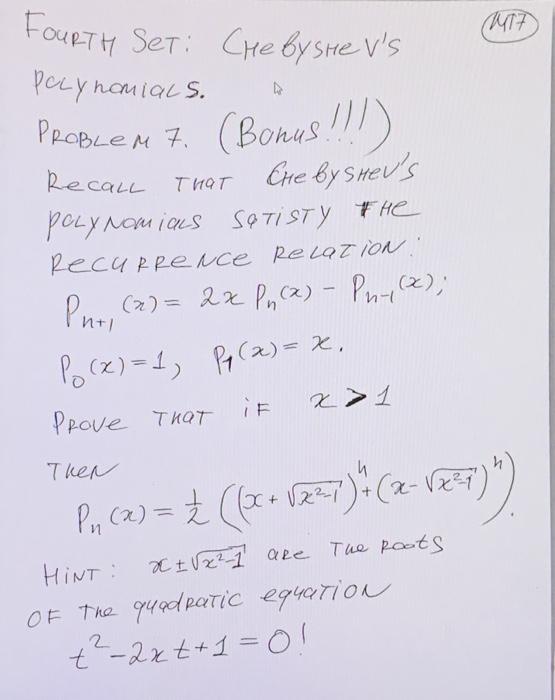 FOURTH SET: CHEBYSHEV'S
MT7
POLYNOMIALS.
PROBLEM 7. (Bonus!!!)
RECALL THAT CHEBYSHEV'S
POLYNOMIALS SATISTY THE
RECURRENCE RELATION:
Pₙ₊₁(x) = 2x Pₙ(x) - Pₙ₋₁(x);
P₀(x) = 1, P₁(x) = x.
PROVE THAT IF x > 1
THEN
Pₙ(x) = ½ ((x + √(x²-1))ⁿ + (x - √(x²-1))ⁿ).
HINT: x ± √(x²-1) ARE THE ROOTS
OF THE QUADRATIC EQUATION
t² - 2xt + 1 = 0!